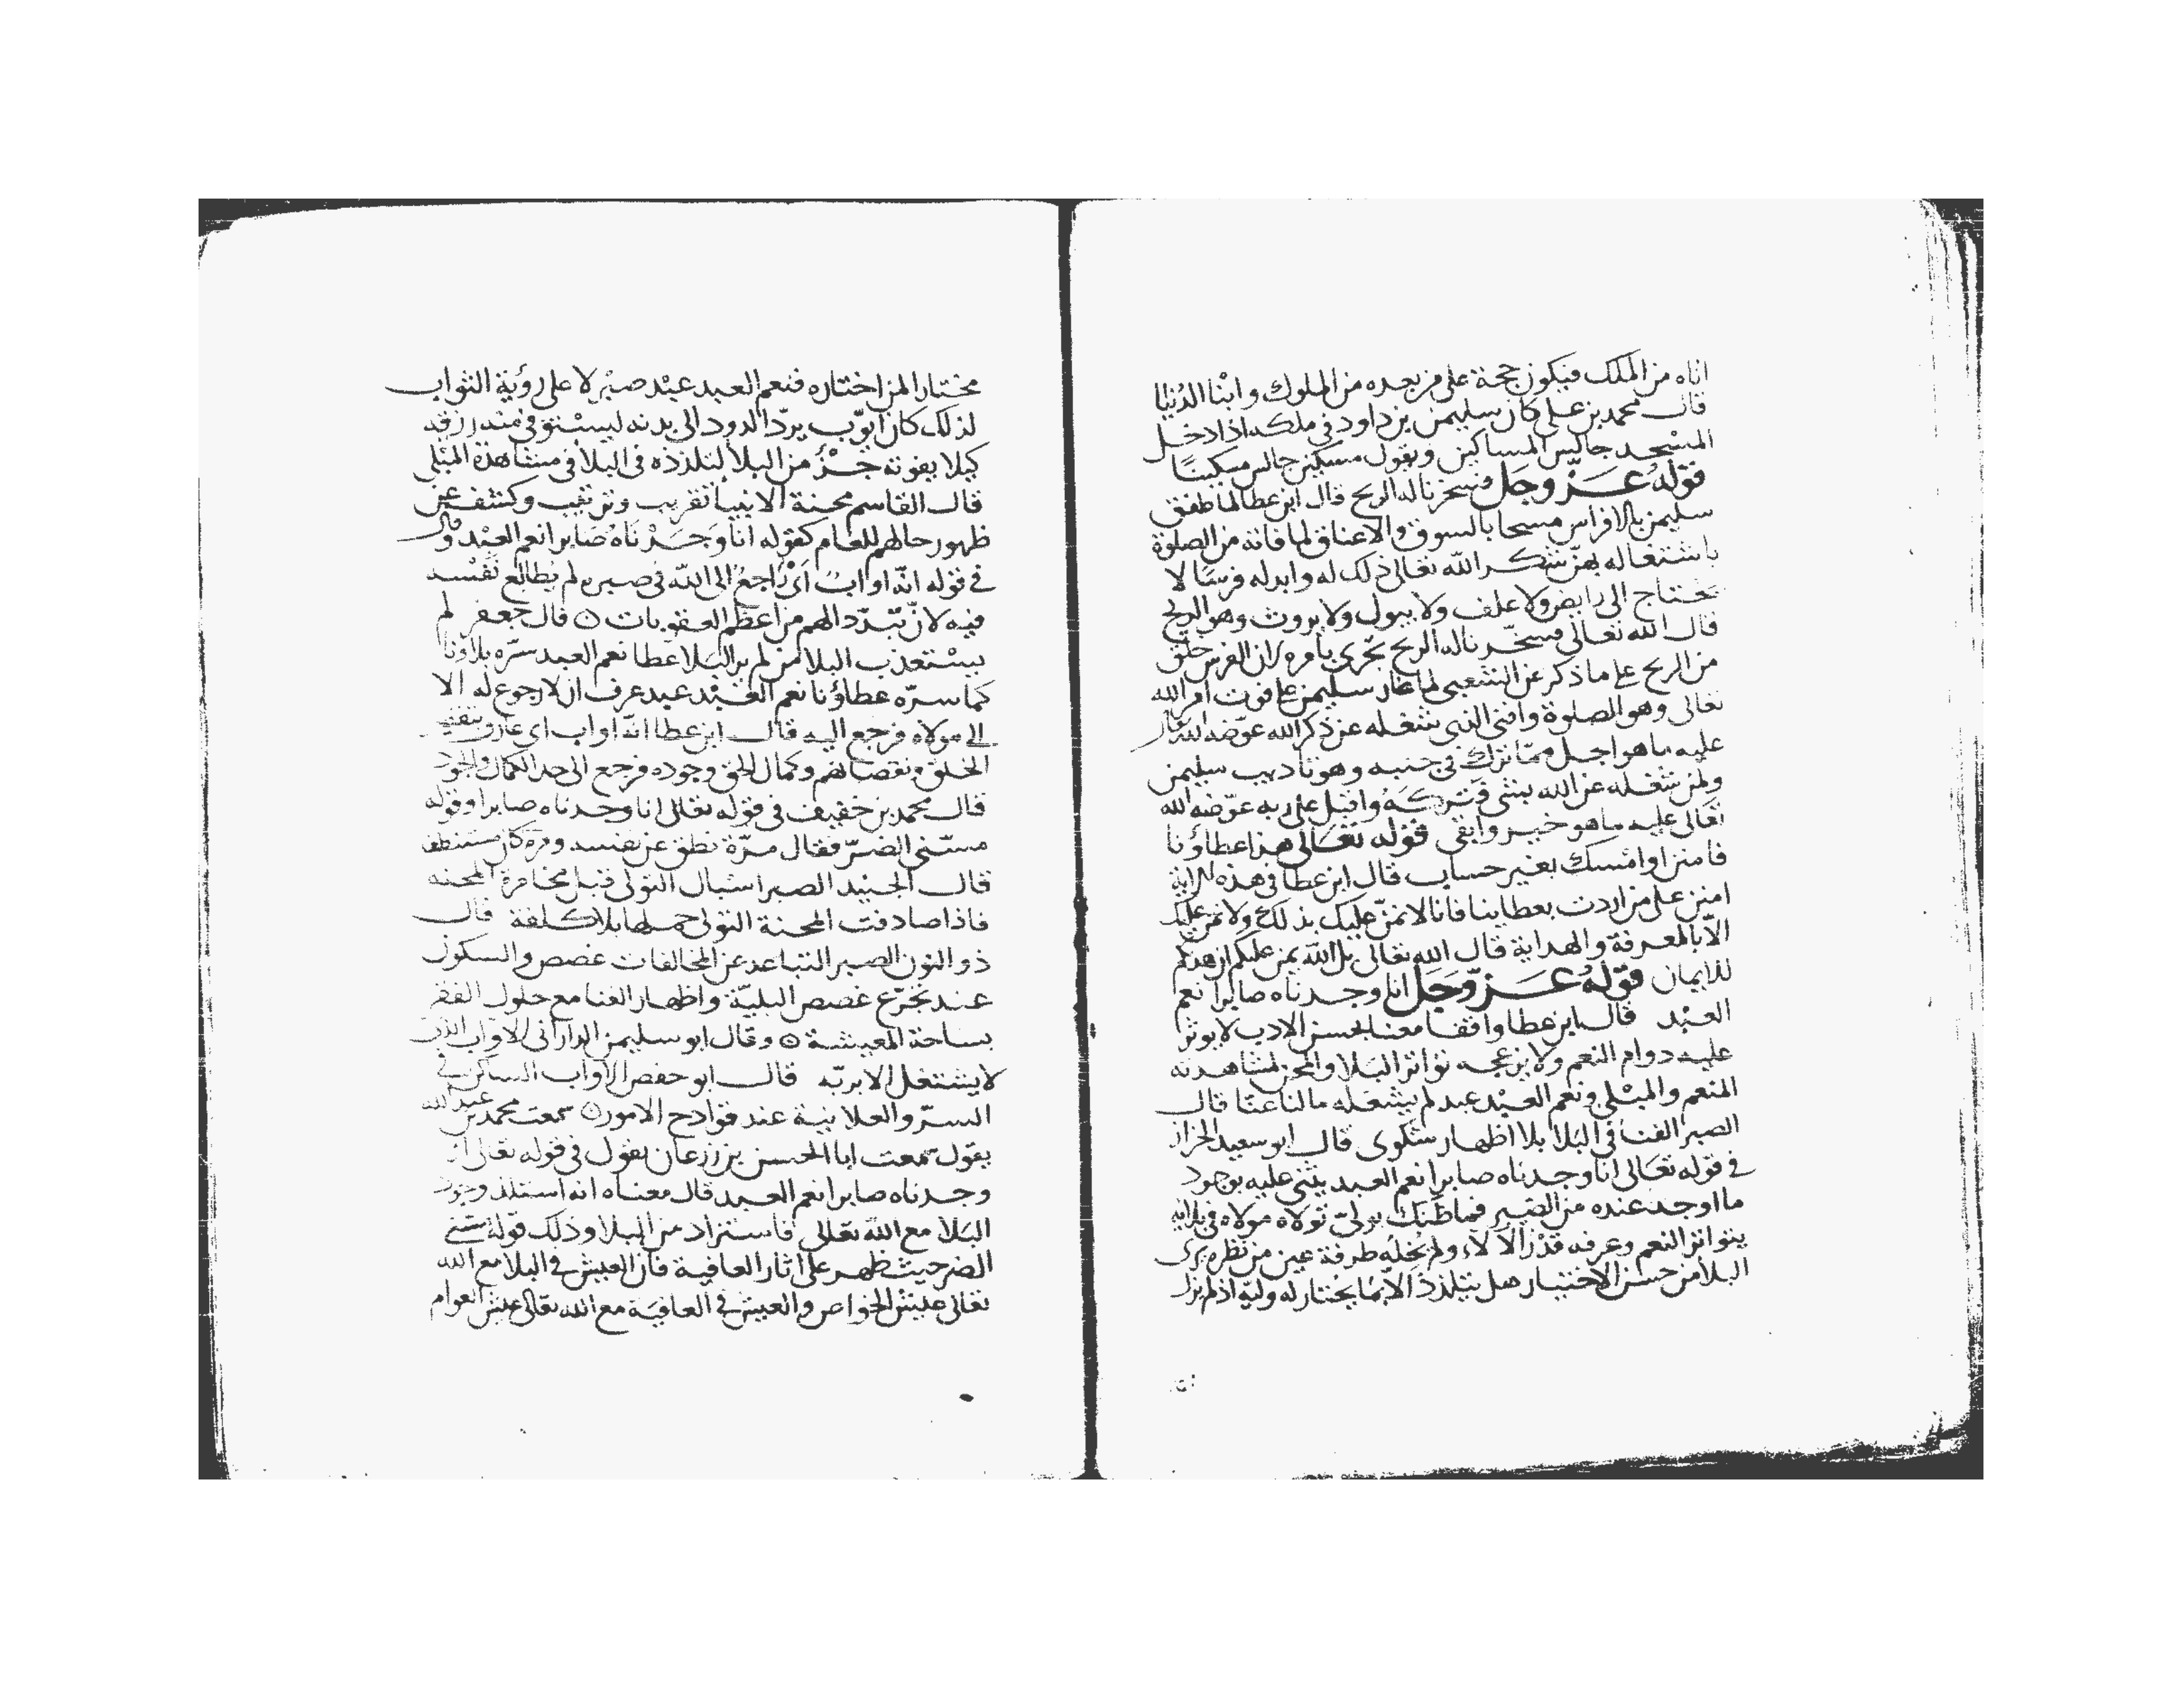 اتاه من الملك فيكون حجة على من بعده من الملوك وابنا الدنيا
قال محمد بن على كان سليمن بن داود فى ملكه اذا دخل
المسجد جالس المساكين ويقول مسكين جالس مسكينا
قوله عز وجل فسخرنا له الريح قال ابن عطا لما طفق
سليمن بالافراس مسحا بالسوق والاعناق لما فاته من الصلوة
باشتغاله بهن شكر الله تعالى ذلك له وابدله فرسا لا
يحتاج الى رايض ولا علف ولا يبول ولا يروث وهو الريح
قال الله تعالى فسخرنا له الريح تجرى بامره لان الفرس خلق
من الريح على ما ذكر عن الشعبى لما غار سليمن على فوت امر الله
تعالى وهو الصلوة وافنى الذى شغله عن ذكر الله عوضه الله
عليه ما هو اجل مما ترك فى جنبه وهو تاديب سليمن
ولمن شغله عن الله بشى فتركه واقبل على ربه عوضه الله
تعالى عليه ما هو خير وابقى قوله تعالى هذا عطاؤنا
فامنن او امسك بغير حساب قال ابن عطا فى هذه الاية
امنن على من اردت بعطايانا فانا لا نمن عليك بذلك ولا نمن عليك
الا بالمعرفة والهداية قال الله تعالى بل الله يمن عليكم ان هديكم
للايمان قوله عز وجل انا وجدناه صابرا نعم
العبد قال ابن عطا واقفا معنا بحسن الادب لا يوثر
عليه دوام النعم ولا يزعجه تواتر البلا والمحن لمشاهدته
المنعم والمبلى ونعم العبد عبد لم يشغله ما لنا عنا قال
الصبر الفنا فى البلا بلا اظهار شكوى قال ابو سعيد الخراز
فى قوله تعالى انا وجدناه صابرا نعم العبد يثنى عليه بوجود
ما اوجد عنده من الصبر فما ظنك بولى تولاه مولاه فى بلايه
بتواتر النعم وعرفه قدر الالاء ولم يخله طرفة عين من نظره يرى
البلا من حسن الاختيار هل يتلذذ الا بما يختار له وليه اذ لم يزل
مختارا لمن اختاره فنعم العبد عبد صبر لا على رؤية الثواب
لذلك كان ايوب يرد الدود الى بدنه ليستوفى منه رزقه
كيلا يفوته جزؤ من البلا لتلذذه فى البلا فى مشاهدة المبلى
قال القاسم محنة الانبيا تقريب وترتيب وكشف عن
ظهور حالهم للعام كقوله انا وجدناه صابرا نعم العبد وقال
فى قوله انه اواب اى راجع الى الله فى صبره لم يطالع نفسه
فيه لان تبدد الهم من اعظم العقوبات ۝ قال جعفر لم
يستعذب البلا من لم ير البلا عطا نعم العبد سره بلاؤنا
كما سره عطاؤنا نعم العبد عبد عرف ان لا رجوع له الا
الى مولاه فرجع اليه قال ابن عطا انه اواب اى عارف
الخلق ونقصانهم وكمال الحق وجوده فرجع الى حد الكمال والجود
قال محمد بن خفيف فى قوله تعالى انا وجدناه صابرا وقوله
مسنى الضر فقال مرة نطق عن نفسه ومرة كان مستنطقا
قال الجنيد الصبر اسبال التولى قبل مخامرة المحنه
فاذا صادفت المحنة التولى حملها بلا كلفة قال
ذو النون الصبر التباعد عن المخالفات غصص والسكون
عند تجرع غصص البلية واظهار الغنا مع حلول الفقر
بساحة المعيشة ۝ وقال ابو سليمن الدارانى الاواب الذى
لا يشتغل الا بربه قال ابو حفص الاواب الساكن فى
السر والعلانية عند فوادح الامور ۝ سمعت محمد بن عبد الله
يقول سمعت ابا الحسن بن زرعان يقول فى قوله تعالى انا
وجدناه صابرا نعم العبد قال معناه انه استلذ وجود
البلا مع الله تعالى فاستزاد من البلا وذلك قوله مسنى
الضر حيث ظهر على اثار العافية فان العيش فى البلا مع الله
تعالى عيش الخواص والعيش فى العافية مع الله تعالى عيش العوام